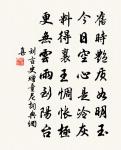 舊時豔質如明玉
今日空心是冷灰
料得襄王惆悵極
更無雲雨到陽台
劉言史贈童尼詞典網